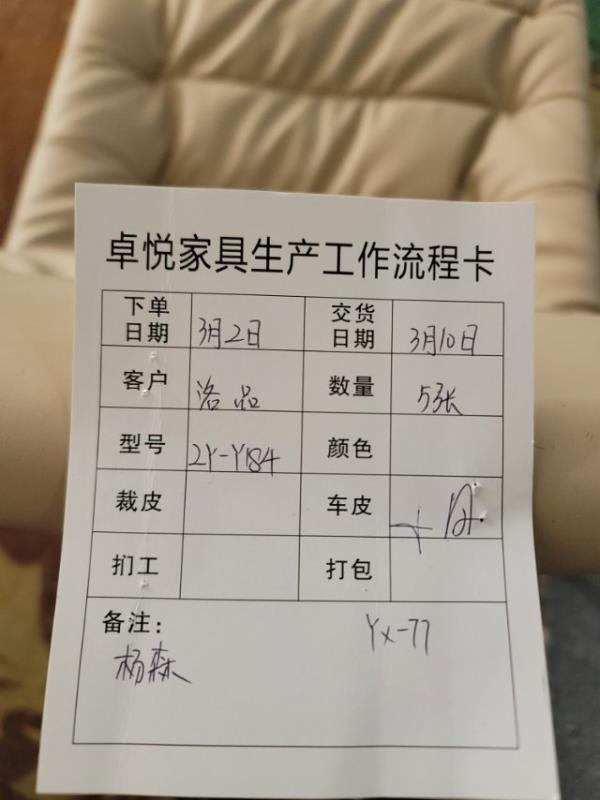 卓悦家具生产工作流程卡
下单日期 3月2日 交货日期 3月10日
客户 洛品 数量 5张
型号 2Y-Y184 颜色
裁皮 车皮
扪工 打包
备注: Yx-77
杨森